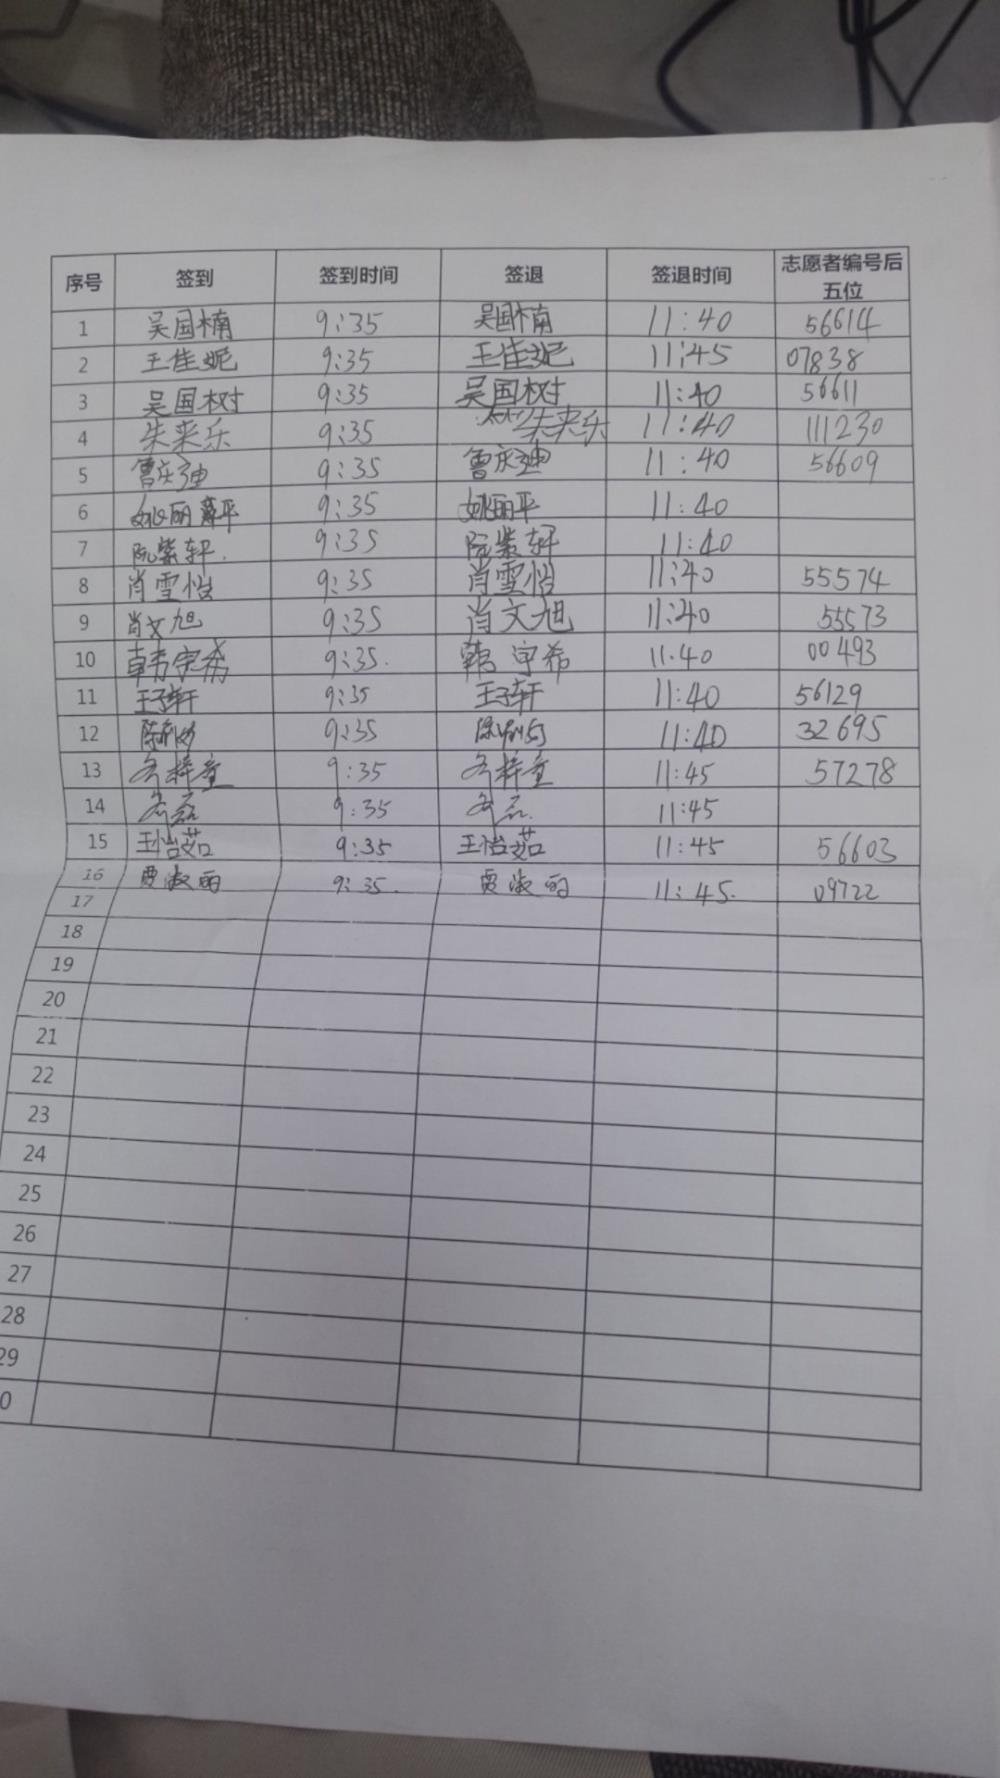 序号 签到 签到时间 签退 签退时间 志愿者编号后五位
1 吴国楠 9:35 吴国楠 11:40 56614
2 王佳妮 9:35 王佳妮 11:45 07838
3 吴国树 9:35 吴国树 11:40 56611
4 朱来乐 9:35 朱来乐 11:40 111230
5 曹庆迪 9:35 曹庆迪 11:40 56609
6 姚丽萍 9:35 姚丽平 11:40
7 阮紫轩. 9:35 阮紫轩 11:40
8 肖雪怡 9:35 肖雪怡 11:40 55574
9 肖文旭 9:35 肖文旭 11:40 55573
10 韩宇希 9:35. 韩宇希 11:40 00493
11 王子轩 9:35 王子轩 11:40 56129
12 9:35 11:40 32695
13 9:35 11:45 57278
14 9:35 11:45
15 王怡茹 9:35 王怡茹 11:45 56603
16 贾淑丽 9:35. 贾淑丽 11:45. 09722
17
18
19
20
21
22
23
24
25
26
27
28
29
0